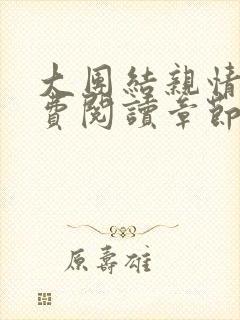 大團結親情
費閱讀章節
原壽雄